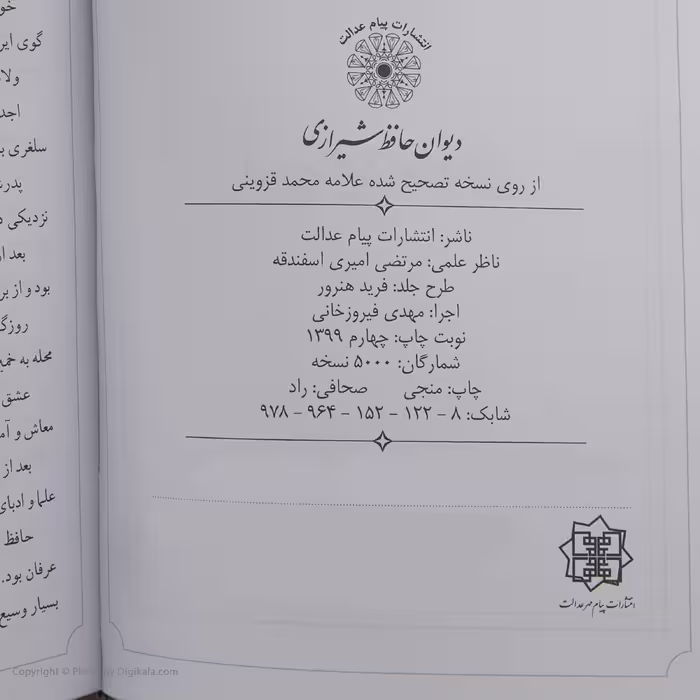 انتشارات پیام عدالت
دیوان حافظ شیرازی
از روی نسخه تصحیح شده علامه محمد قزوینی
ناشر: انتشارات پیام عدالت
ناظر علمی: مرتضی امیری اسفندقه
طرح جلد: فرید هنرور
اجرا: مهدی فیروزخانی
نوبت چاپ: چهارم ۱۳۹۹
شمارگان: ۵۰۰۰ نسخه
چاپ: منجی صحافی: راد
شابک: ۸ – ۱۲۲ – ۱۵۲ – ۹۶۴ – ۹۷۸
انتشارات پیام مهر عدالت
گوی
سلغری
نزدیکی
بعد
بود و از
محله به
عشق
معاش و
بعد از
علما و ادبای
حافظ
عرفان بود.
بسیار وسیع
Copyright © Photo by Digikala.com